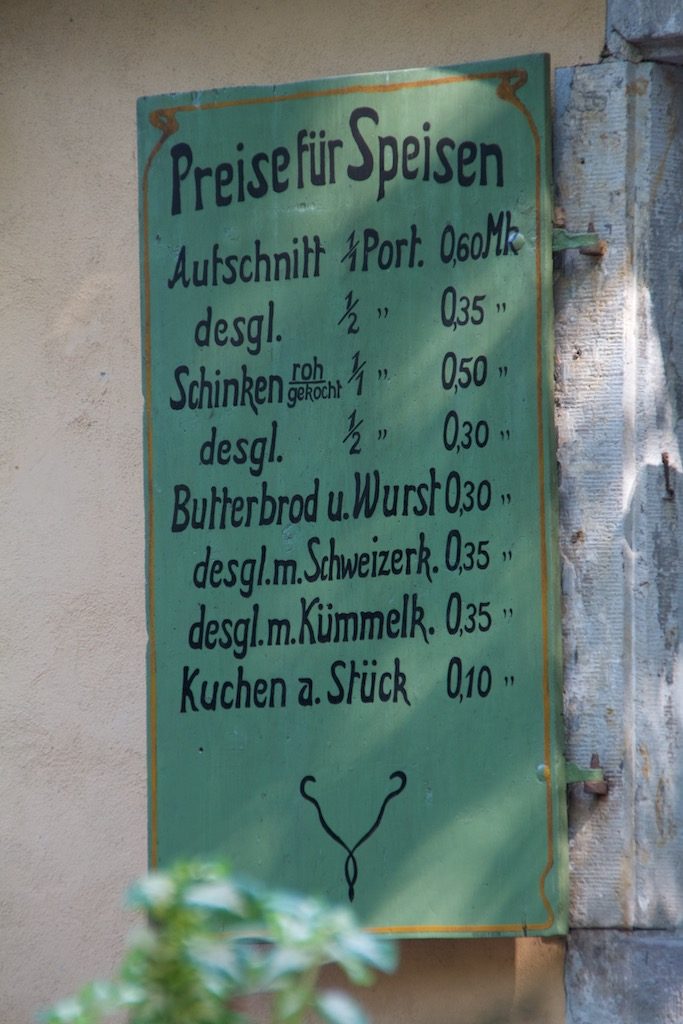 Preise für Speisen
Aufschnitt 1/1 Port. 0,60 Mk
desgl. 1/2 " 0,35 "
Schinken roh/gekocht 1/1 " 0,50 "
desgl. 1/2 " 0,30 "
Butterbrod u. Wurst 0,30 "
desgl. m. Schweizerk. 0,35 "
desgl. m. Kümmelk. 0,35 "
Kuchen a. Stück 0,10 "